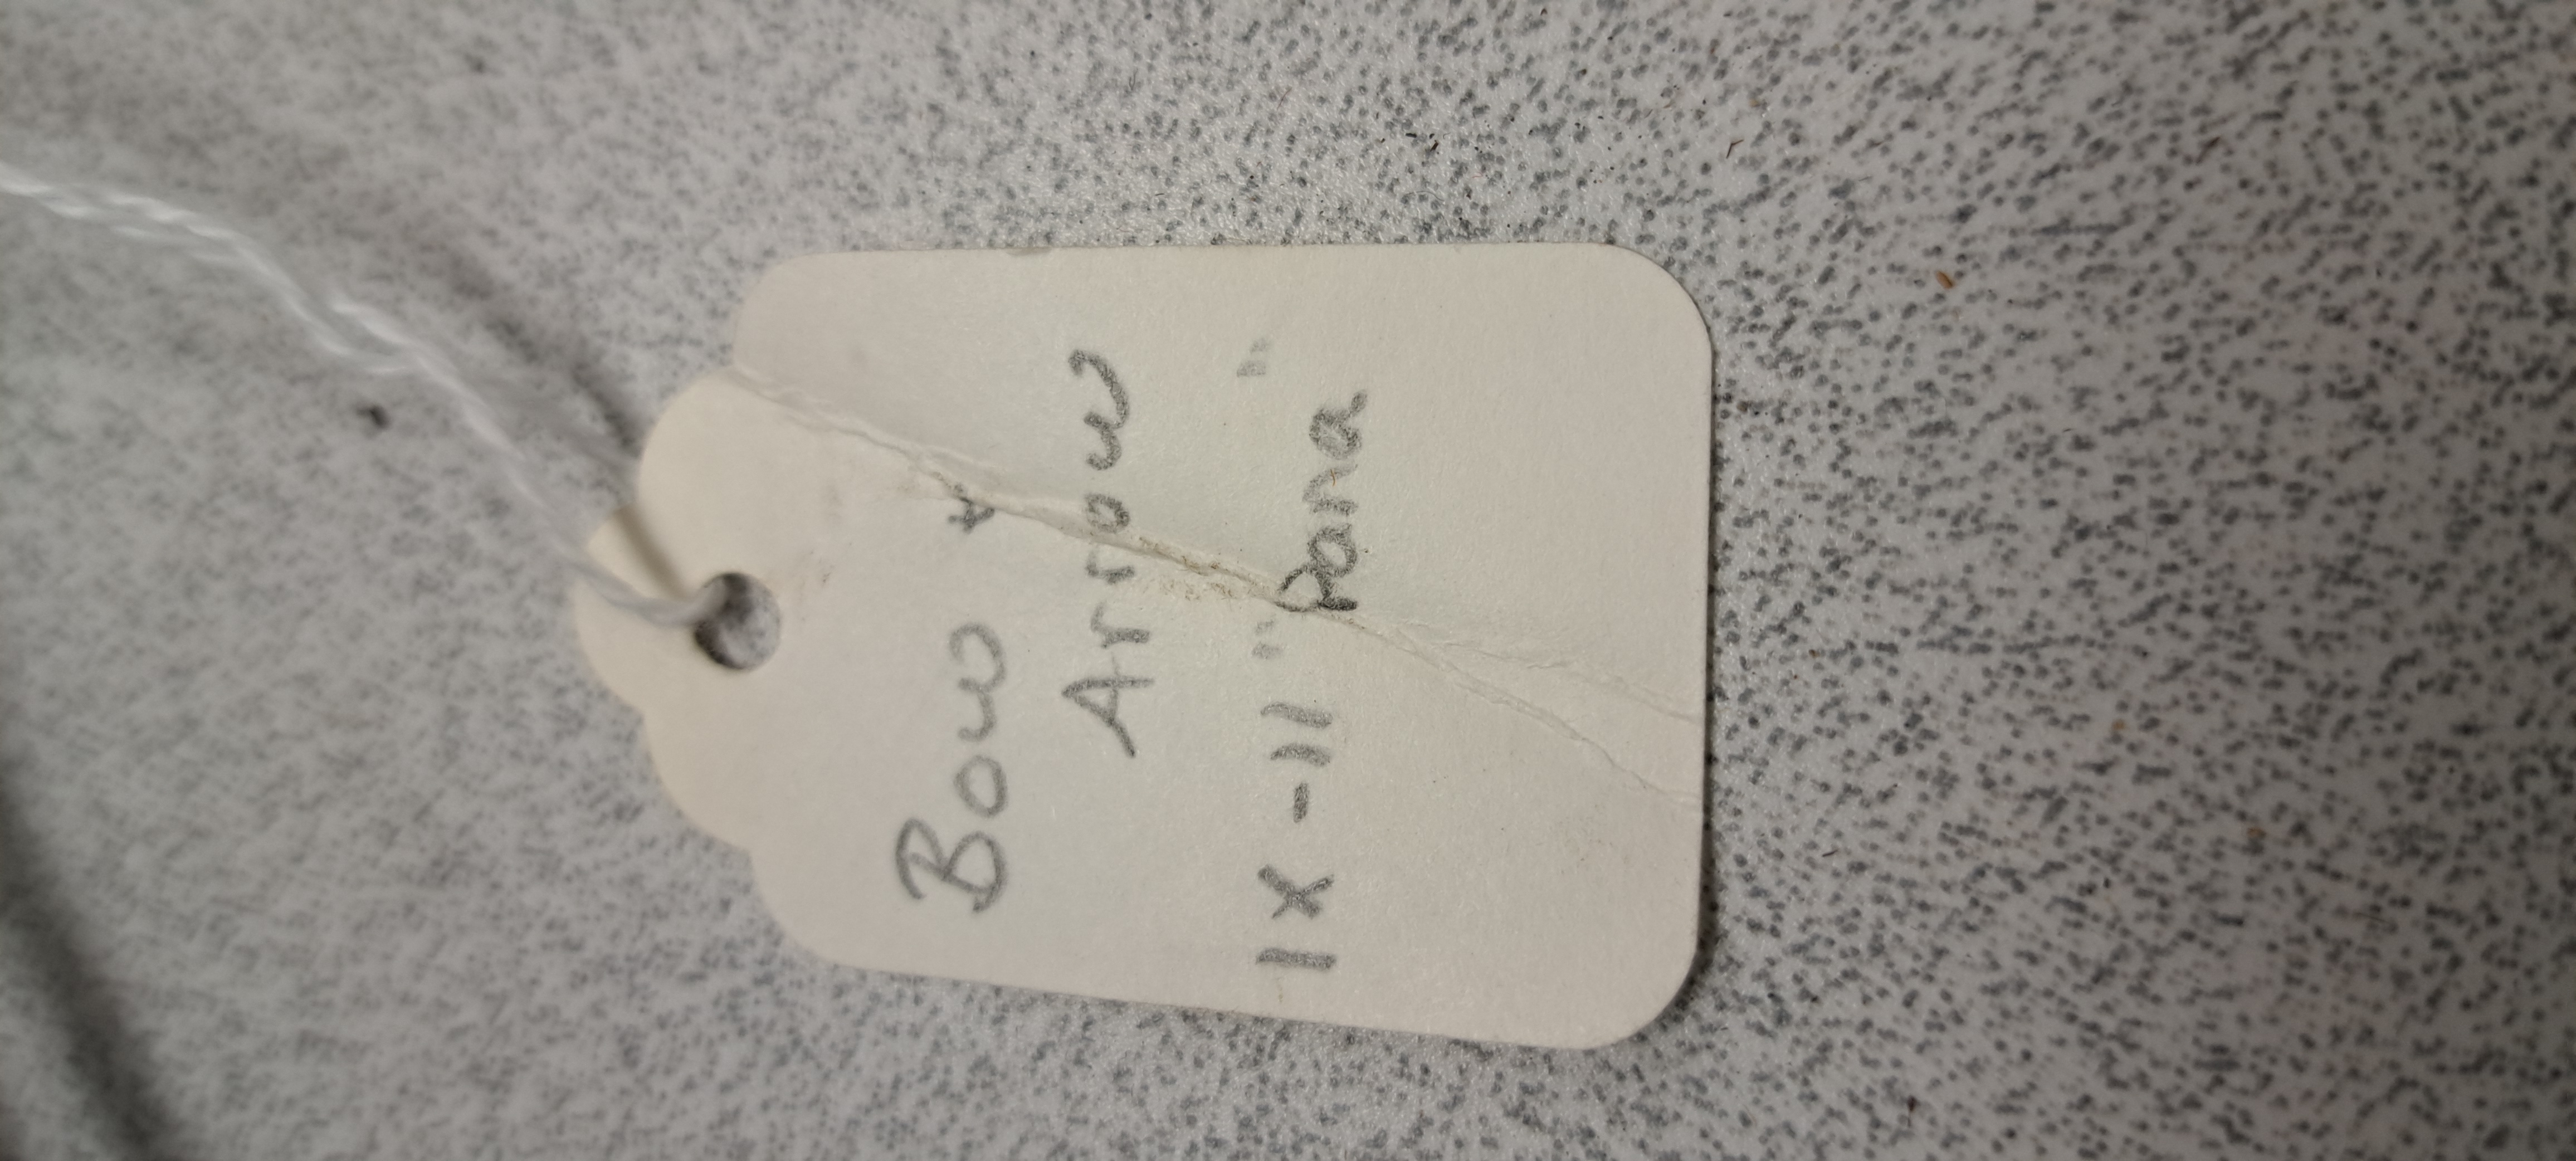 Bow &
Arrow
IX-11 "Pana"